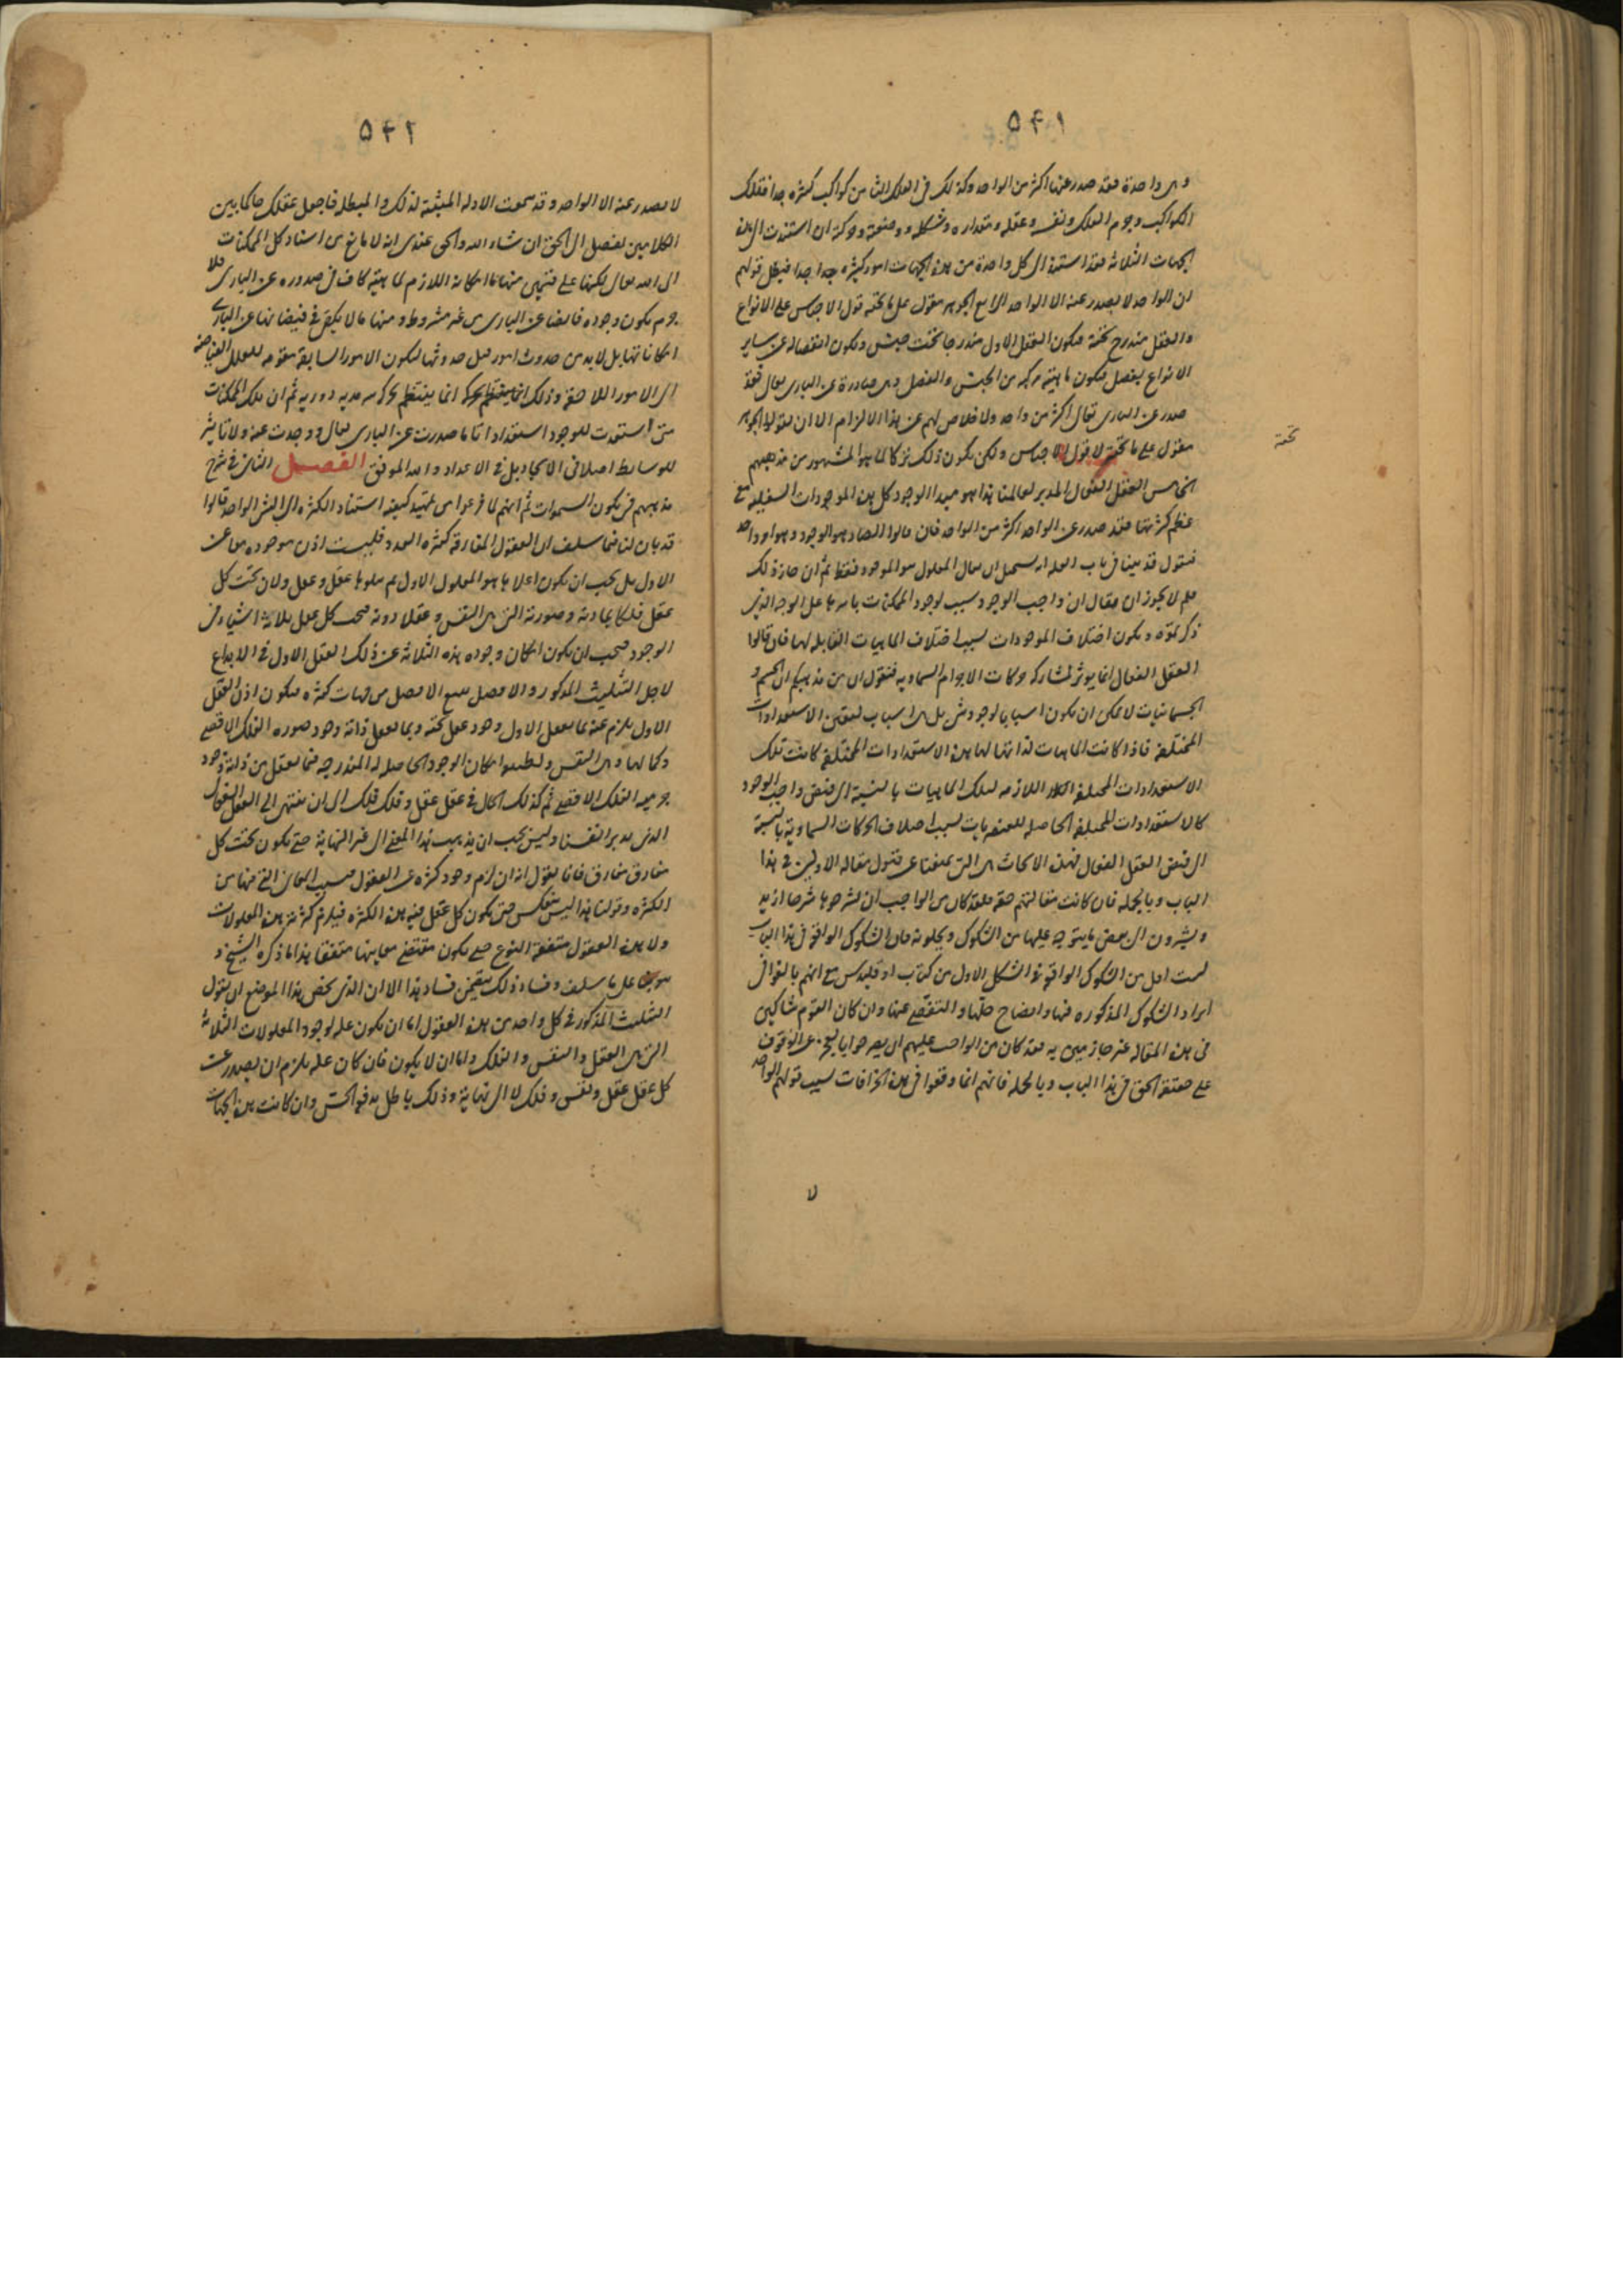 ٥٤١
وهى واحدة فقد صدر عنها اكثر من الواحد وكذلك فى الفلك الثامن كواكب كثيره جدا فتلك
الكواكب وجرم الفلك ونفسه وعقله ومقداره وشكله ووضعه وحركته ان استندت الى هذه
الجهات الثلاثه فقد استند الى كل واحدة من هذه الجهات امور كثيره جدا جدا فبطل قولهم
ان الواحد لا يصدر عنه الا الواحد الرابع الجوهر مقول على ما تحته قول الاجناس على الانواع
والعقل مندرج تحته فيكون العقل الاول مندرجا تحت جنس ويكون انفصاله عن ساير
الانواع بفصل فيكون ماهيته مركبه من الجنس والفصل وهى صادرة عن البارى تعالى فقد
صدر عن البارى تعالى اكثر من واحد ولا خلاص لهم عن هذا الالزام الا ان يقولوا الجوهر
مقول على ما تحته لا قول الاجناس ولكن يكون ذلك تركا لما هو المشهور من مذهبهم
تحته
الخامس العقل الفعال المدبر لعالمنا هذا هو مبدا الوجود كل هذه الموجودات السفليه مع
عظم كثرتها فقد صدر عن الواحد اكثر من الواحد فان قالوا الصادر هو الوجود وهو امر واحد
فنقول قد بينا فى باب العله انه يستحيل ان يقال المعلول هو الوجود فقط ثم ان جاز ذلك
فلم لا يجوز ان يقال ان واجب الوجود سبب لوجود الممكنات باسرها على الوجه الذى
ذكرتموه ويكون اختلاف الموجودات لسبب اختلاف الماهيات القابله لها فان قالوا
العقل الفعال انما يوثر لمشاركه حركات الاجرام السماويه فنقول ان من مذهبكم ان الجسم و
الجسمانيات لا يمكن ان يكون اسبابا لوجود شى بل هى اسباب لتعين الاستعدادات
المختلفه فاذا كانت الماهيات لذاتها لها هذه الاستعدادات المختلفه كانت تلك
الاستعدادات المختلفه اللازمه لتلك الماهيات بالنسبة الى فيض واجب الوجود
كالاستعدادات المختلفه الحاصله للعنصريات لسبب اختلاف الحركات السماوية بالنسبة
الى فيض العقل الفعال فهذه الابحاث هى التى تمنعنا عن قبول مقالة الاولين فى هذا
الباب وبالجمله فان كانت مقالتهم حقه فلقد كان من الواجب ان يشرحوها شرحا ازيد
ويشيرون الى بعض ما يتوجه عليها من الشكوك ويحلونه فان الشكوك الواقعة فى هذا الباب
ليست اقل من الشكوك الواقعة فى الشكل الاول من كتاب اوقليدس مع انهم بالغوا فى
ايراد الشكوك المذكوره فيها وايضاح حلها والتفصى عنها وان كان القوم شاكين
فى هذه المقاله غير جازمين به فقد كان من الواجب عليهم ان يصرحوا بالعجز عن الوقوف
على حقيقة الحق فى هذا الباب وبالجمله فانهم انما وقعوا فى هذه الخرافات لسبب قولهم الواحد
لا
٥٤٢
لا يصدر عنه الا الواحد وقد سمعت الادله المثبته لذلك والمبطله فاجعل عقلك حاكما بين
الكلامين لتصل الى الحق ان شاء الله والحق عندى انه لا مانع من استناد كل الممكنات
الى الله تعالى لكنها على قسمين منها ما امكانه اللازم لماهيته كاف فى صدوره عن البارى فلا
جرم يكون وجوده فايضا عن البارى من غير مشروط ومنها ما لا يكفى فى فيضانها عن البارى
امكاناتها بل لابد من حدوث امور قبل حدوثها ليكون الامور السابقة مقربه للعلل الفياضه
الى الامور اللاحقه وذلك انما ينتظم بحركة سرمديه دوريه ثم ان تلك الممكنات
متى استعدت للوجود استعدادا تاما صدرت عن البارى تعالى ووجدت عنه ولا تاثير
للوسايط اصلا فى الايجاد بل فى الاعداد والله الموفق الفصل الثانى فى شرح
مذهبهم فى تكون السموات ثم انهم لما فرغوا من تمهيد كيفيه استناد الكثره الى الشى الواحد قالوا
قد بان لنا فيما سلف ان العقول المفارقة كثيره العدد فليست اذن موجوده معا عن
الاول بل يجب ان يكون اعلاها هو المعلول الاول ثم يتلوها عقل وعقل ولان تحت كل
عقل فلكا بمادته وصورته التى هى النفس وعقلا دونه فتحت كل عقل ثلاثه اشياء فى
الوجود فيجب ان يكون امكان وجوده هذه الثلاثه عن ذلك العقل الاول فى الابداع
لاجل التثليث المذكور والافضل يتبع الافضل من جهات كثيره فيكون اذن العقل
الاول يلزم عنه بما يعقل الاول وجود عقل تحته وبما يعقل ذاته وجود صوره الفلك الاقصى
وكمالها وهى النفس ولطبيعه امكان الوجود الحاصله له المندرجه فيما يعقل من ذاته وجود
جرميه الفلك الاقصى ثم كذلك الحال فى عقل عقل وفلك فلك الى ان ينتهى الى العقل الفعال
الذى يدبر انفسنا وليس يجب ان يذهب هذا المعنى الى غير النهايه حتى يكون تحت كل
مفارق مفارق فانا نقول انه ان لزم وجود كثره عن العقول فبسبب المعانى التى فيها من
الكثره وقولنا هذا ليس ينعكس حتى يكون كل عقل فيه هذه الكثره فيلزم كثرته هذه المعلولات
ولا هذه العقول متفقة النوع حتى يكون مقتضى معانيها متفقا هذا ما ذكره الشيخ و
هو مبنى على ما سلف وفساد ذلك يتضمن فساد هذا الا ان الذى يخص هذا الموضع ان نقول
التثليث المذكور فى كل واحد من هذه العقول اما ان يكون علة لوجود المعلولات الثلاثة
التى هى العقل والنفس والفلك واما ان لا يكون فان كان علة يلزم ان يصدر عن
كل عقل عقل ونفس وفلك لا الى نهاية وذلك باطل يدفعه الحس وان كانت هذه الجهات